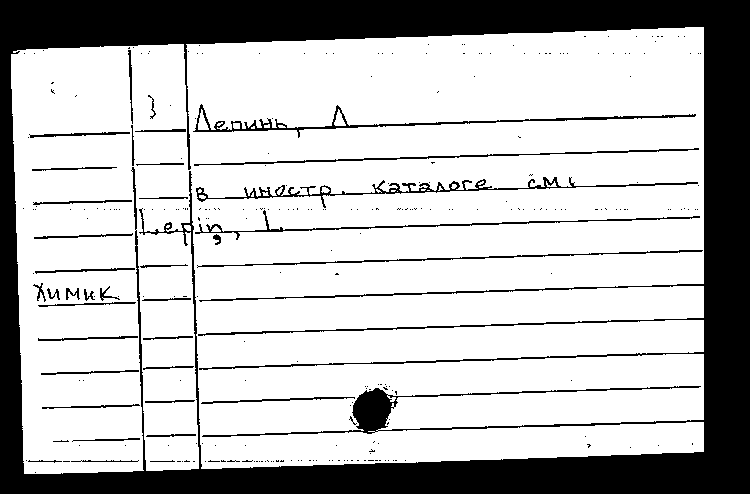 Лепинь, Л
в иностр. каталоге см.
Lepiņ, L
химик